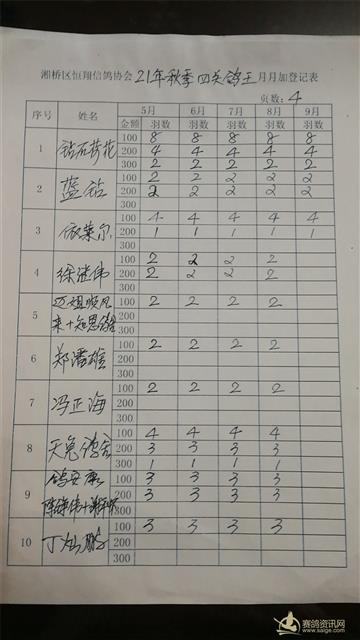 湘桥区恒翔信鸽协会21年秋季四关鸽王月月加登记表
页数:4
序号 姓名 5月 6月 7月 8月 9月
金额 羽数 羽数 羽数 羽数 羽数
1 钻石荷花 100 8 8 8 8 8
200 4 4 4 4 4
300 2 2 2 2 2
2 蓝钻 100 2 2 2 2 2
200 2 2 2 2 2
300
3 依莱尔 100 4 4 4 4 4
200 1 1 1 1 1
300
4 徐进伟 100 2 2 2 2
200 2 2 2 2
300
5 迈姐顺风 100 2 2 2 2
来+知恩鸽舍 200
300
6 郑潘雄 100 2 2 2 2
200
300
7 冯正海 100 2 2 2 2
200
300
8 天兔鸽舍 100 4 4 4 4
200 3 3 3 3
300 1 1 1 1
9 鸽安康 100 3 3 3 3
200 3 3 3 3
300
10 丁灿鹏 100 3 3 3 3
200
300
赛鸽资讯网
www.saige.com